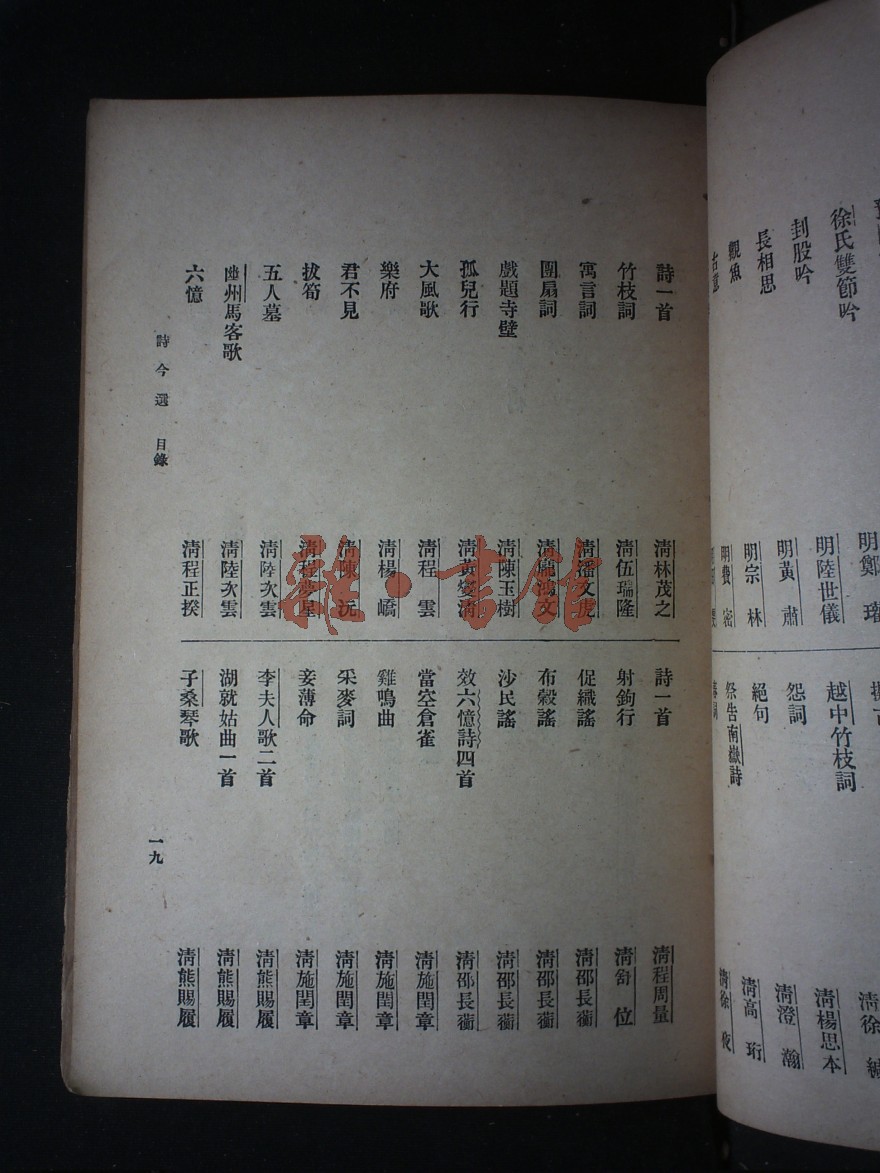 徐氏雙節吟
明鄭瓘
刲股吟
明陸世儀
長相思
明黃肅
觀魚
明宗林
古意
明費密
越中竹枝詞
怨詞
清楊思本
絕句
清澄瀚
祭告南嶽詩
清高珩
清徐夜
詩一首
清林茂之
竹枝詞
清伍瑞隆
寓言詞
清潘文虎
團扇詞
戲題寺壁
清陳玉樹
孤兒行
清黃燮清
大風歌
清程雲
樂府
清楊嶠
君不見
清陳沅
拔筍
清程夢星
五人墓
清陸次雲
幽州馬客歌
清陸次雲
六憶
清程正揆
詩一首
清程周量
射鉤行
清舒位
促織謠
清邵長蘅
布穀謠
清邵長蘅
沙民謠
清邵長蘅
效六憶詩四首
清邵長蘅
當空倉雀
清施閏章
雞鳴曲
清施閏章
采麥詞
清施閏章
妾薄命
清施閏章
李夫人歌二首
清熊賜履
湖就姑曲一首
清熊賜履
子桑琴歌
清熊賜履
詩今選 目錄
一九
雜·書館